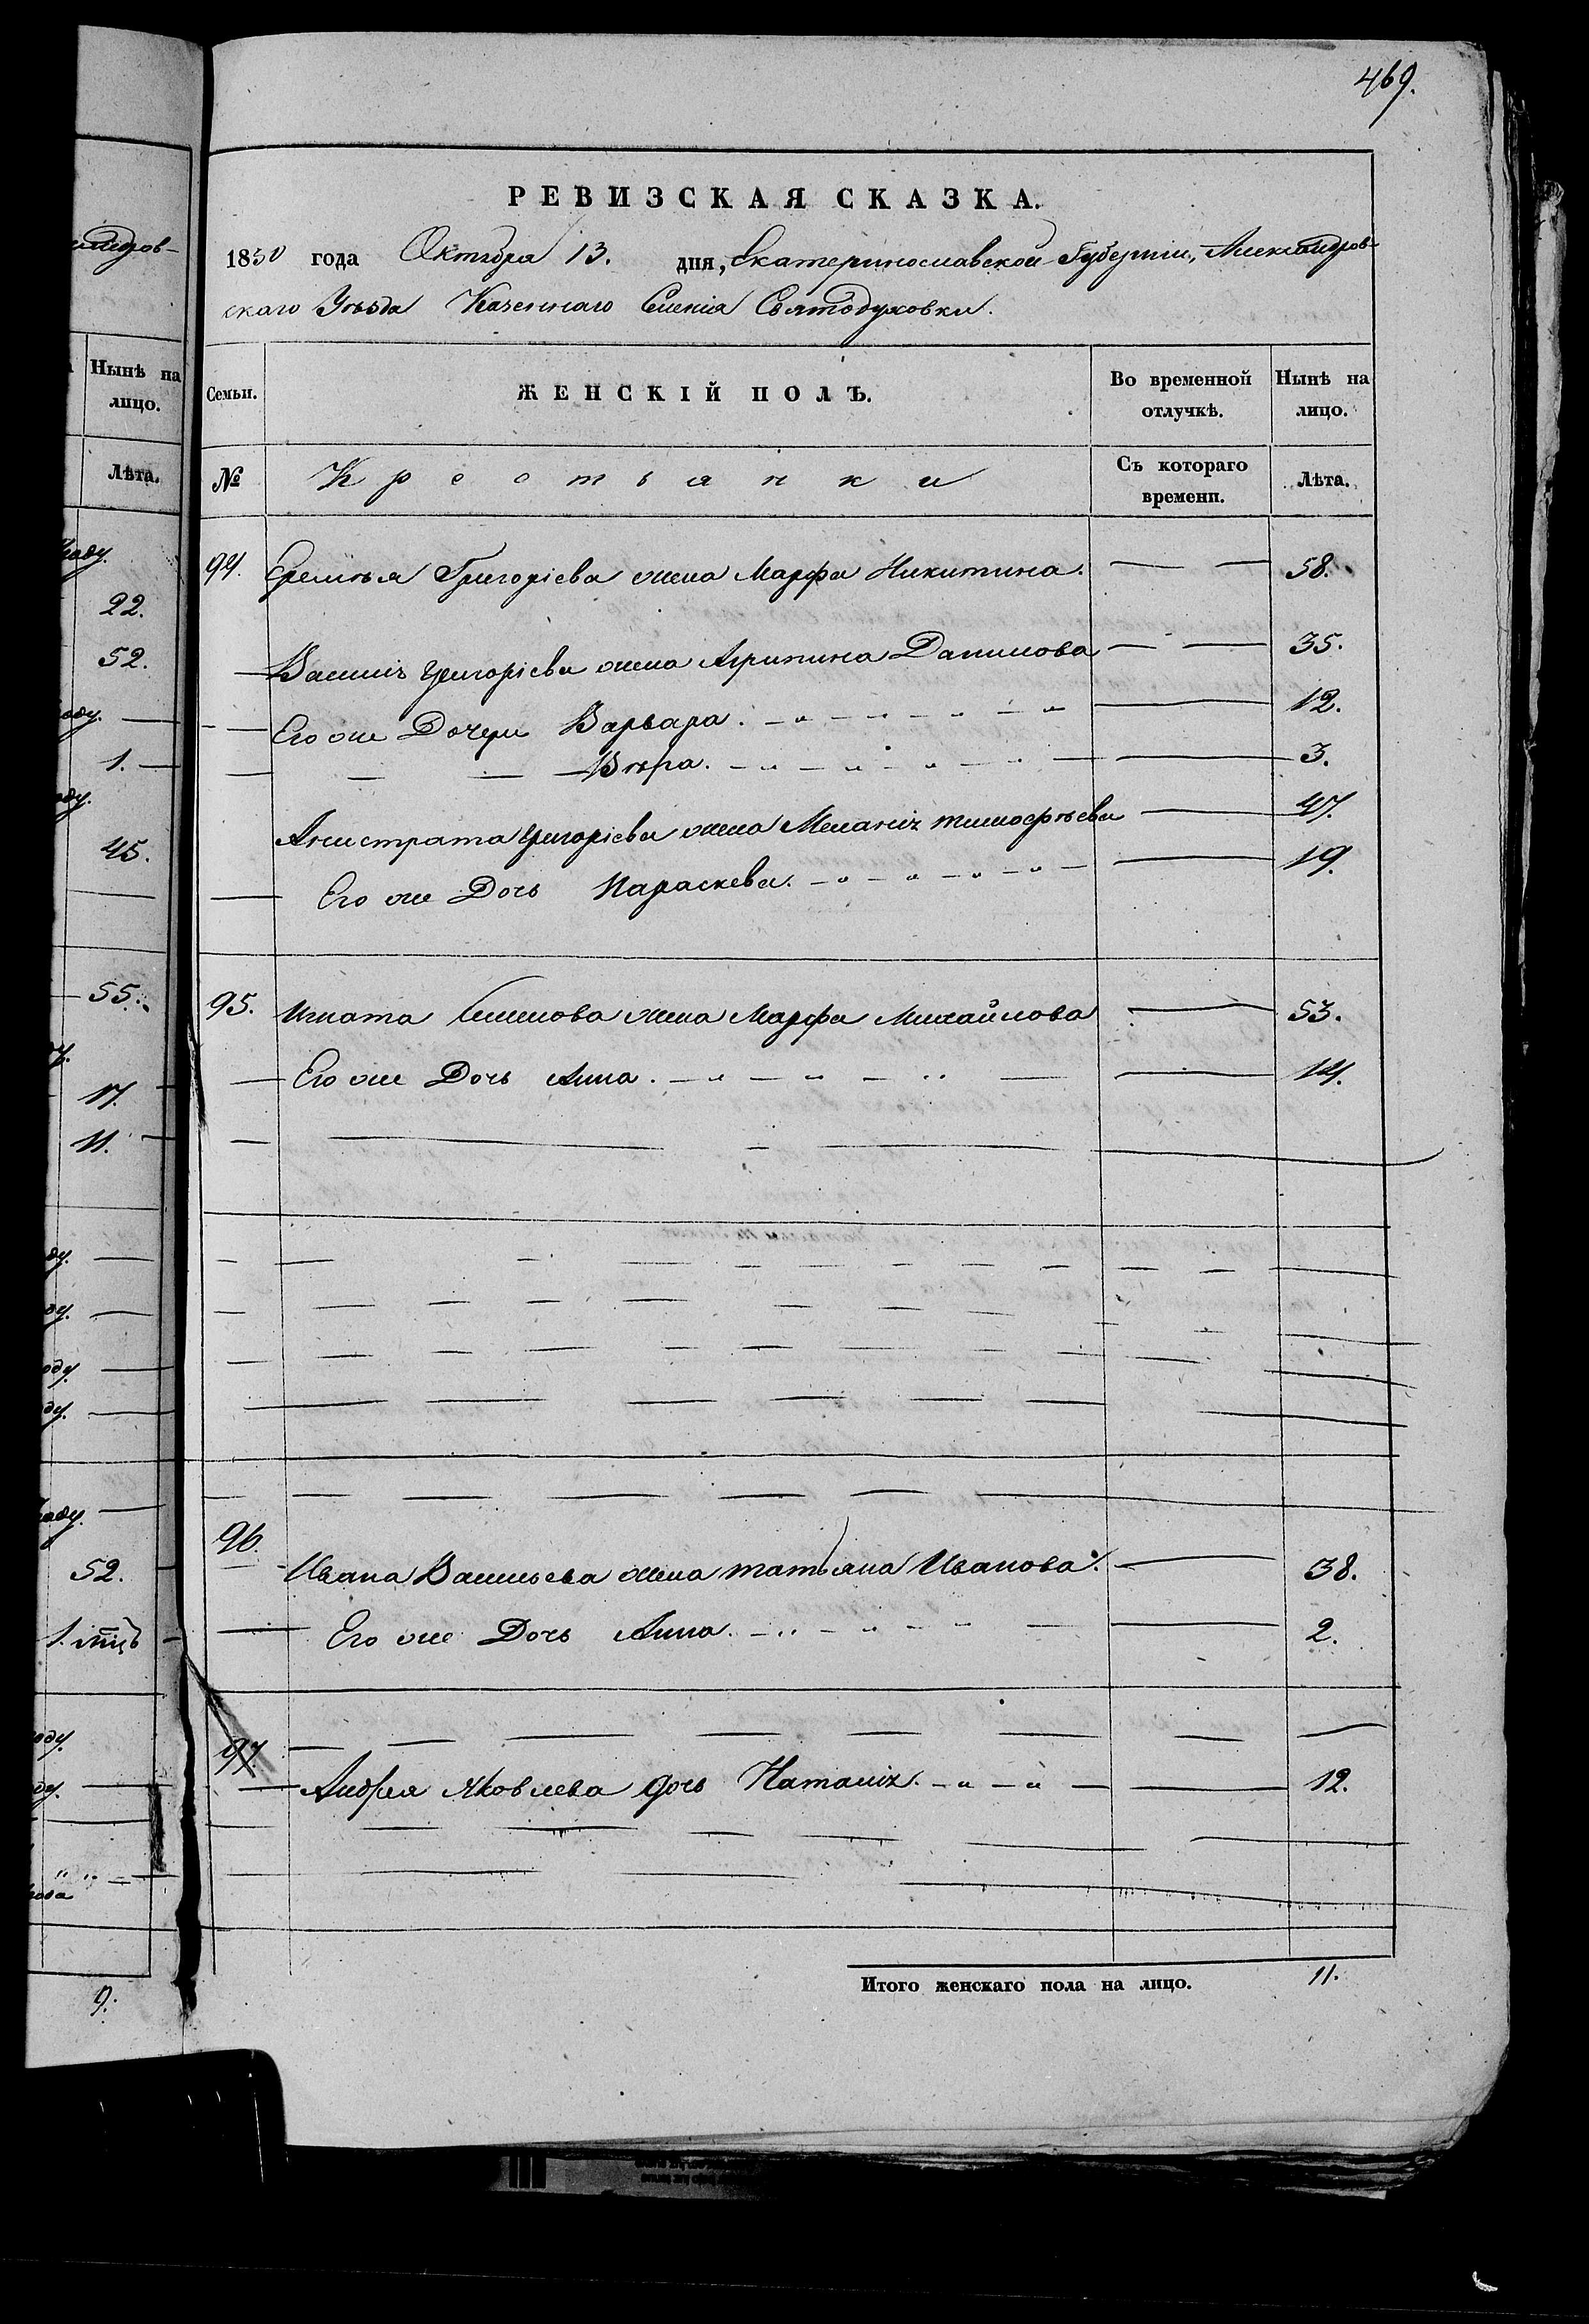 469.
РЕВИЗСКАЯ СКАЗКА.
1850 года Октября 13. дня, Екатеринославской Губерніи, Александров-
скаго Уѣзда Казеннаго Селенія Святодуховки.
Семьи.
ЖЕНСКІЙ ПОЛЪ.
Во временной отлучкѣ.
Нынѣ на лицо.
№
Крестьянки
Съ котораго времени.
Лѣта.
94. Еремѣя Григорієва жена Марфа Никитина. — — 58.
Василія Григорієва жена Агрипина Данилова — — 35.
— Его же Дочери Варвара. — 12.
— — — Вѣра. — 3.
Анистрата Григорієва жена Меланія тимофѣева — 47.
— Его же Дочь Параскева. — 19.
95. Игната Семенова жена Марфа Михайлова — 53.
— Его же Дочь Анна. — 14.
96. Ивана Васильева жена татьяна Иванова. — 38.
— Его же Дочь Анна. — 2.
97. Андрея Яковлева дочь Наталія. — 12.
Итого женскаго пола на лицо. 11.
андров-
Нынѣ на
лицо.
Лѣта.
22.
52.
оду.
1.
45.
55.
17.
11.
ду.
ду.
оду.
ду.
52.
1.
оду.
ду.
9.